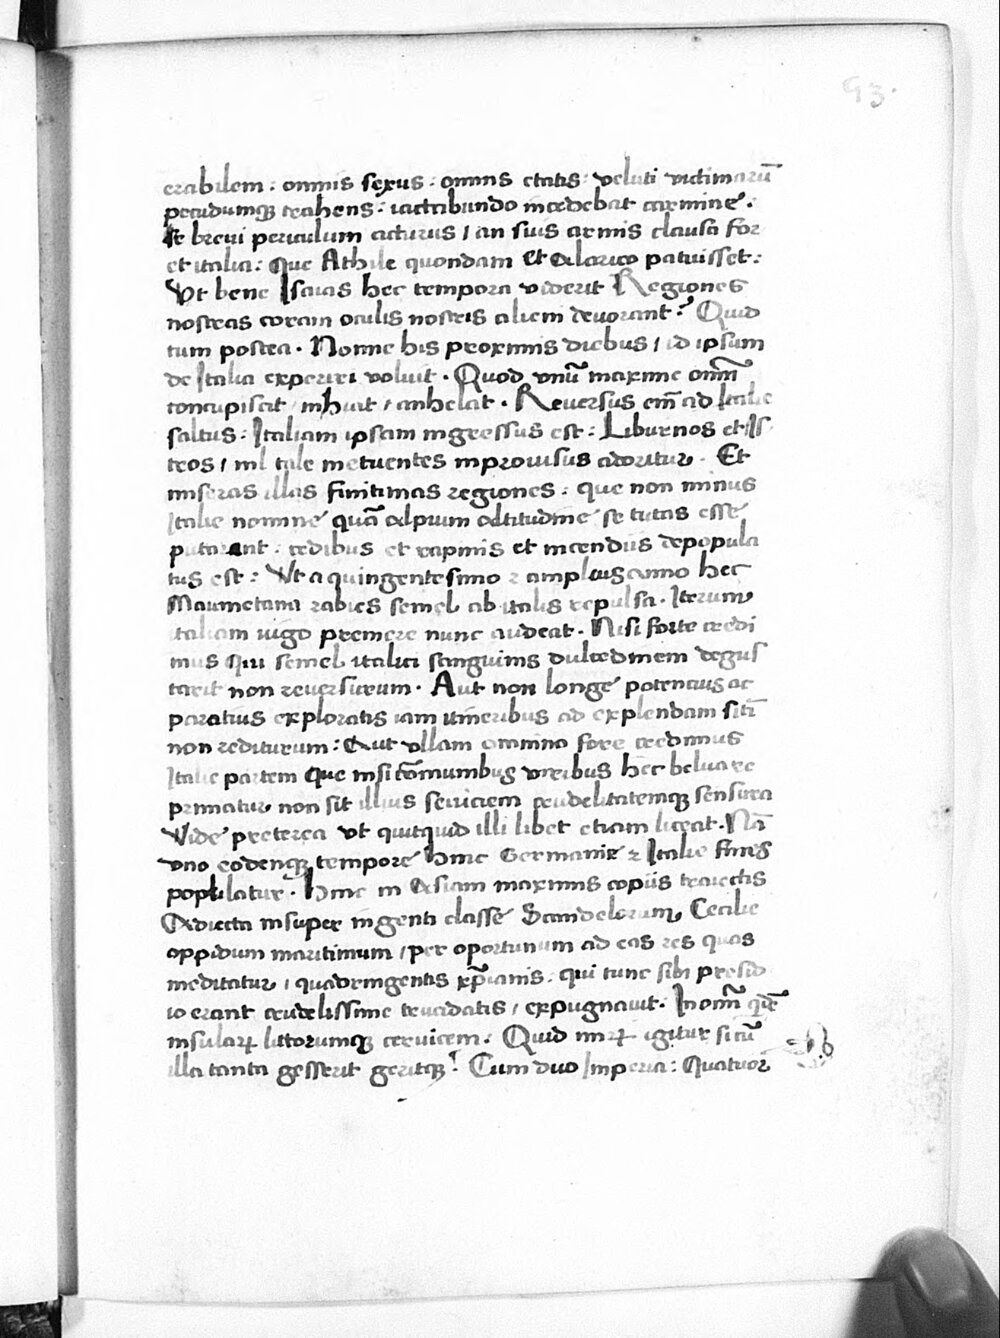 93.
erabilem : omnis sexus : omnis etatis : veluti victimarũ
pecudumqꝫ trahens : iactabundo incedebat carmine .
Se brevi periculum acturus / an suis armis clausa for
et italia : Que Athile quondam et Alarico patuisset :
Vt bene Isaias hec tempora viderit Regiones
nostras coram oculis nostris alieni devorant ? Quid
tum postea . Nonne his proximis diebus / id ipsum
de Italia experiri voluit . Quod vnũ maxime omñ
concupiscit / inhiat / anhelat . Reversus em̃ ad Italie
saltus : Italiam ipsam ingressus est : Liburnos et Is
tros / nil tale metuentes improvisus adoritur . Et
miseras illas finitimas regiones : que non minus
Italie nomine quã alpium altitudine se tutas esse
putarant : cedibus et rapinis et incendiis depopula
tus est : Vt a quingentesimo ⁊ amplius anno hec
Maumetana rabies semel ab italis repulsa . Iterum
italiam iugo premere nunc audeat . Nisi forte credi
mus qui semel italici sanguinis dulcedinem degus
tarit non reversurum . Aut non longe potentius ac
paratius exploratis iam itineribus ad explendam sitĩ
non rediturum : Aut vllam omnino fore credimus
Italie partem que nisi cõmunibus viribus hec beluare
primatur non sit illius seviciem crudelitatemqꝫ sensura
Vide preterea vt quitquid illi libet etiam liceat . Nã
vno eodemqꝫ tempore hinc Germanie ⁊ Italie fines
populatur . Hinc in Asiam maximis copiis traiectis
Adiecta insuper ingenti classe Scandelorum Cecilie
oppidum maritimum / per oportunum ad eas res quas
meditatur / quadringentis xp̃ianis . qui tunc sibi presid
io erant crudelissime trucidatis / expugnavit . In omñ qdẽ
insulaꝝ littorumqꝫ cervicem . Quid miꝝ igitur si tũ
illa tanta gesserit geritqꝫ ? Cum duo Imperia : Quatuor